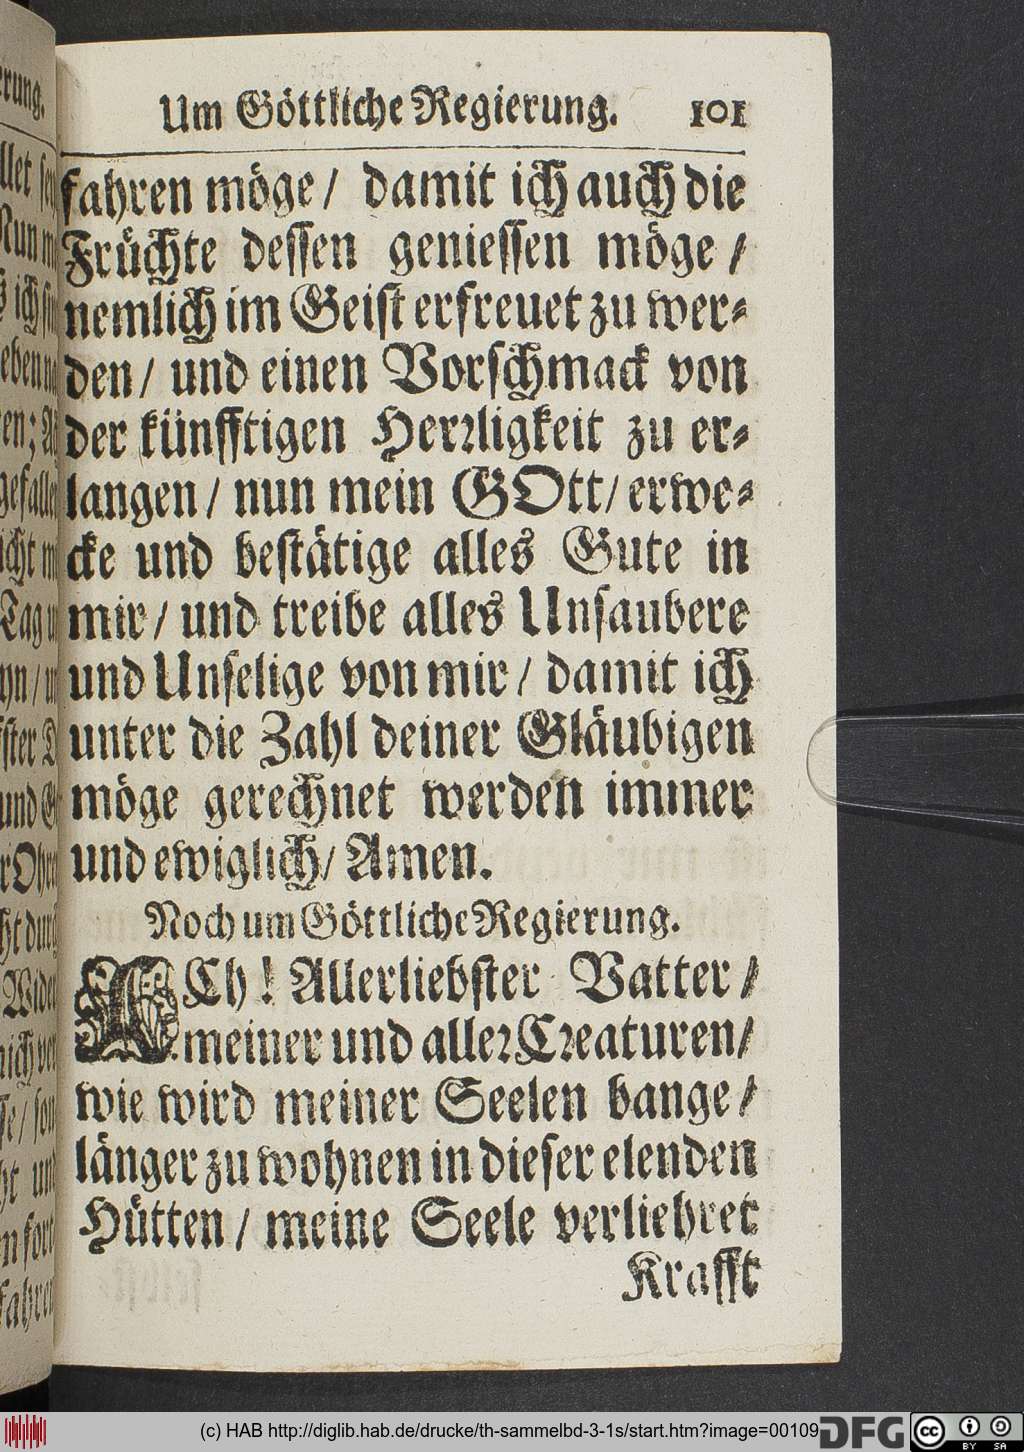 Um Göttliche Regierung. 101
fahren möge/ damit ich auch die
Früchte dessen geniessen möge/
nemlich im Geist erfreuet zu wer-
den/ und einen Vorschmack von
der künfftigen Herrligkeit zu er-
langen/ nun mein GOtt/ erwe-
cke und bestätige alles Gute in
mir/ und treibe alles Unsaubere
und Unselige von mir/ damit ich
unter die Zahl deiner Gläubigen
möge gerechnet werden immer
und ewiglich/ Amen.
Noch um Göttliche Regierung.
ACh! Allerliebster Vatter/
meiner und aller Creaturen/
wie wird meiner Seelen bange/
länger zu wohnen in dieser elenden
Hütten/ meine Seele verliehret
Krafft
(c) HAB http://diglib.hab.de/drucke/th-sammelbd-3-1s/start.htm?image=00109
DFG
cc BY SA